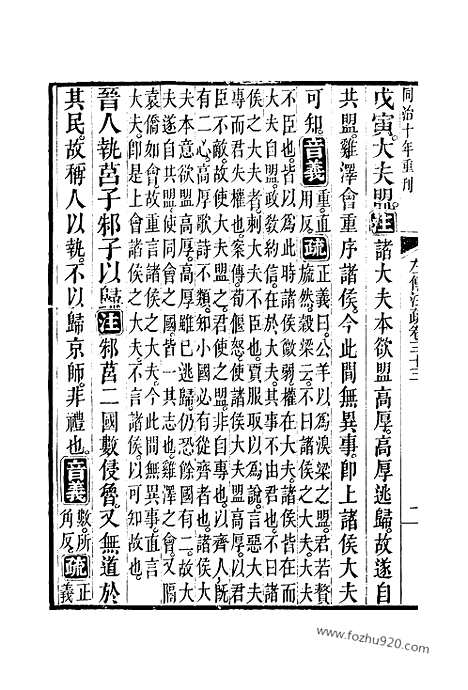 同治十年重刊
左傳注疏卷三十三
二
戊寅大夫盟注諸大夫本欲盟高厚高厚逃歸故遂自
共盟雞澤會重序諸侯今此間無異事即上諸侯大夫
可知音義重直用反疏正義曰公羊以為溴梁之盟君若贅旒然穀梁云不曰諸侯之大夫大夫
不臣也皆以為此時諸侯微弱權在大夫諸侯皆在而
大夫自盟政教約信在於大夫其事不由君也不曰諸
侯之大夫者刺大夫不臣也賈服取以為說言惡大夫
專而君失權也案傳荀偃怒使諸侯大夫盟高厚以君
臣不敵故使大夫盟之君使之盟非自專也以齊人既
有二心高厚歌詩不類知小國必有從齊者也諸侯大
夫本意欲盟高厚高厚雖已逃歸仍恐餘國有二故大
夫遂自共盟使同會之國皆一其志也雞澤之會又隔
袁僑如會故重言諸侯之大夫今此間無異事直言
大夫即是上會諸侯之大夫不言諸侯以可知故
晉人執莒子邾子以歸注邾莒二國數侵魯又無道於
其民故稱人以執不以歸京師非禮也音義數所角反疏正義
www.fozhu920.com